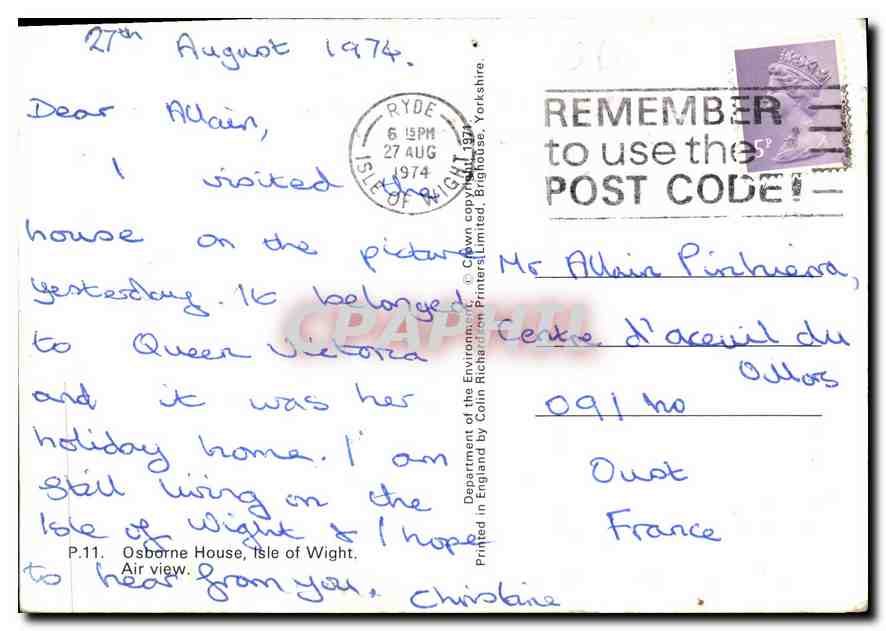 27th August 1974.
Dear Allain,
I visited the
house on the picture
yesterday. It belonged
to Queen Victoria
and it was her
holiday home. I am
still living on the
Isle of Wight & I hope
to hear from you. Christaine
P.11. Osborne House, Isle of Wight.
Air view.
Department of the Environment. © Crown copyright 1971.
Printed in England by Colin Richardson Printers Limited, Brighouse, Yorkshire.
RYDE
6 15PM
27 AUG
1974
ISLE OF WIGHT
REMEMBER
to use the
POST CODE!
5P
Mr Allain
Centre d'aceuil du
09140
Oust
France
CPAPHIL